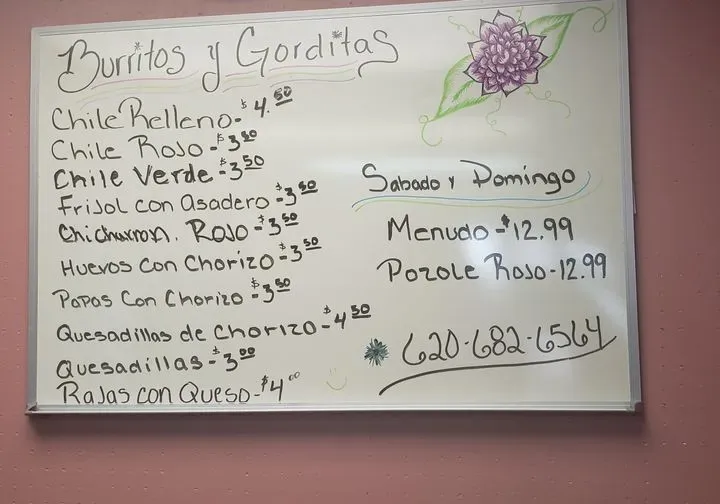 Burritos y Gorditas
Chile Relleno-$4.50
Chile Rojo-$3.50
Chile Verde-$3.50
Frijol con Asadero-$3.50
Chicharron. Rojo-$3.50
Huevos Con Chorizo-$3.50
Papas Con Chorizo-$3.50
Quesadillas de Chorizo-$4.50
Quesadillas-$3.00
Rajas con Queso-$4.00
Sabado y Domingo
Menudo-$12.99
Pozole Rojo-12.99
620-682-6564